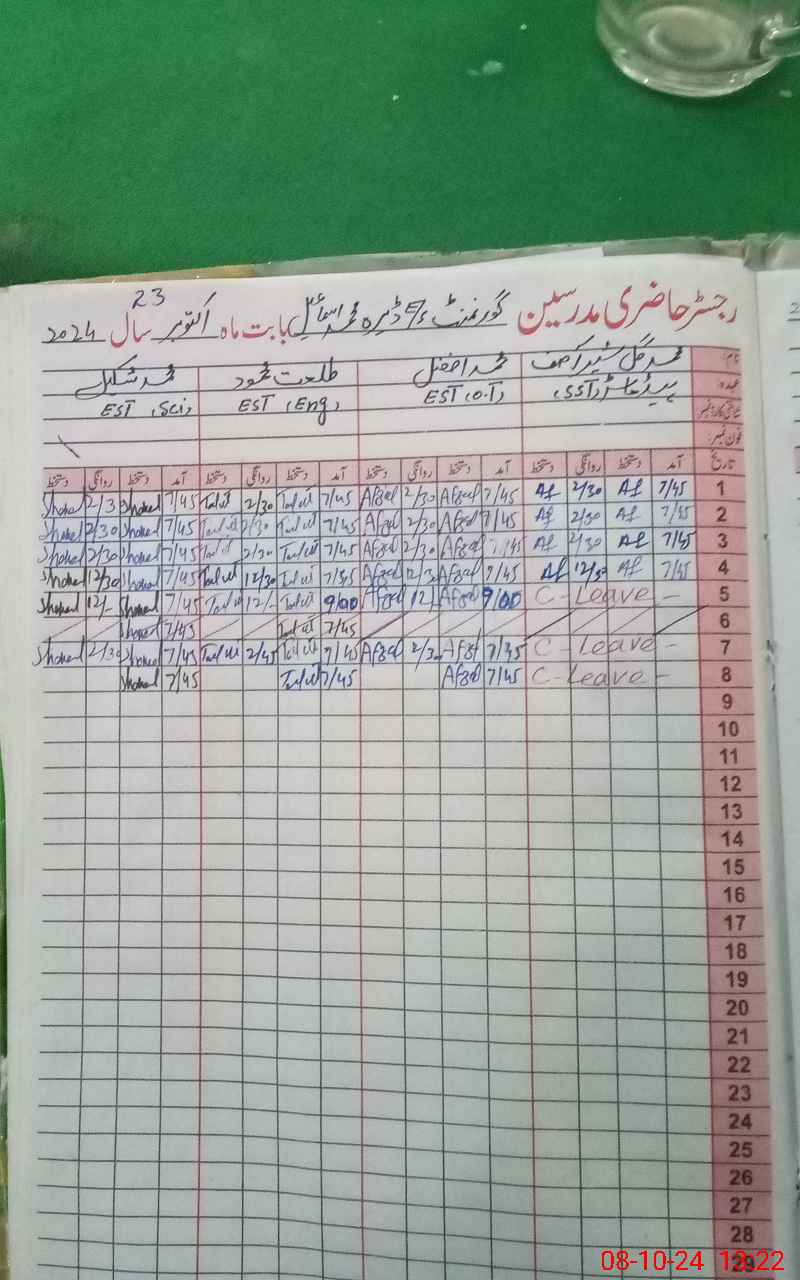 رجسٹر حاضری مدرسین گورنمنٹ ڈیرہ محمد اسماعیل بابت ماہ اکتوبر سال 2024
23
نام: محمد افضل طلعت محمود محمد شکیل
عہدہ EST (O.A) EST (Eng) EST (Sci)
شناختی کارڈ نمبر
فون نمبر:
تاریخ آمد دستخط روانگی دستخط آمد دستخط روانگی دستخط آمد دستخط روانگی دستخط آمد دستخط روانگی دستخط
1 7/45 Af 2/30 Af 7/45 Afzal 2/30 Afzal 7/45 Talat 2/30 Talat 7/45 Shakeel 2/3 Shakeel
2 7/45 Af 2/30 Af 7/45 Afzal 2/30 Afzal 7/45 Talat 2/30 Talat 7/45 Shakeel 2/30 Shakeel
3 7/45 Af 2/30 Af 7/45 Afzal 2/30 Afzal 7/45 Talat 2/30 Talat 7/45 Shakeel 2/30 Shakeel
4 7/45 Af 12/30 Af 7/45 Afzal 12/30 Afzal 7/45 Talat 12/30 Talat 7/45 Shakeel 12/30 Shakeel
5 C - Leave - 9/00 Afzal 12/ Afzal 9/00 Talat 12/- Talat 7/45 Shakeel 12/- Shakeel
6 7/45 Talat 7/45 Shakeel
7 C - Leave - 7/45 Afzal 2/30 Afzal 7/45 Talat 2/45 Talat 7/45 Shakeel 2/30 Shakeel
8 C - Leave - 7/45 Afzal 7/45 Talat 7/45 Shakeel
9
10
11
12
13
14
15
16
17
18
19
20
21
22
23
24
25
26
27
28
29
08-10-24